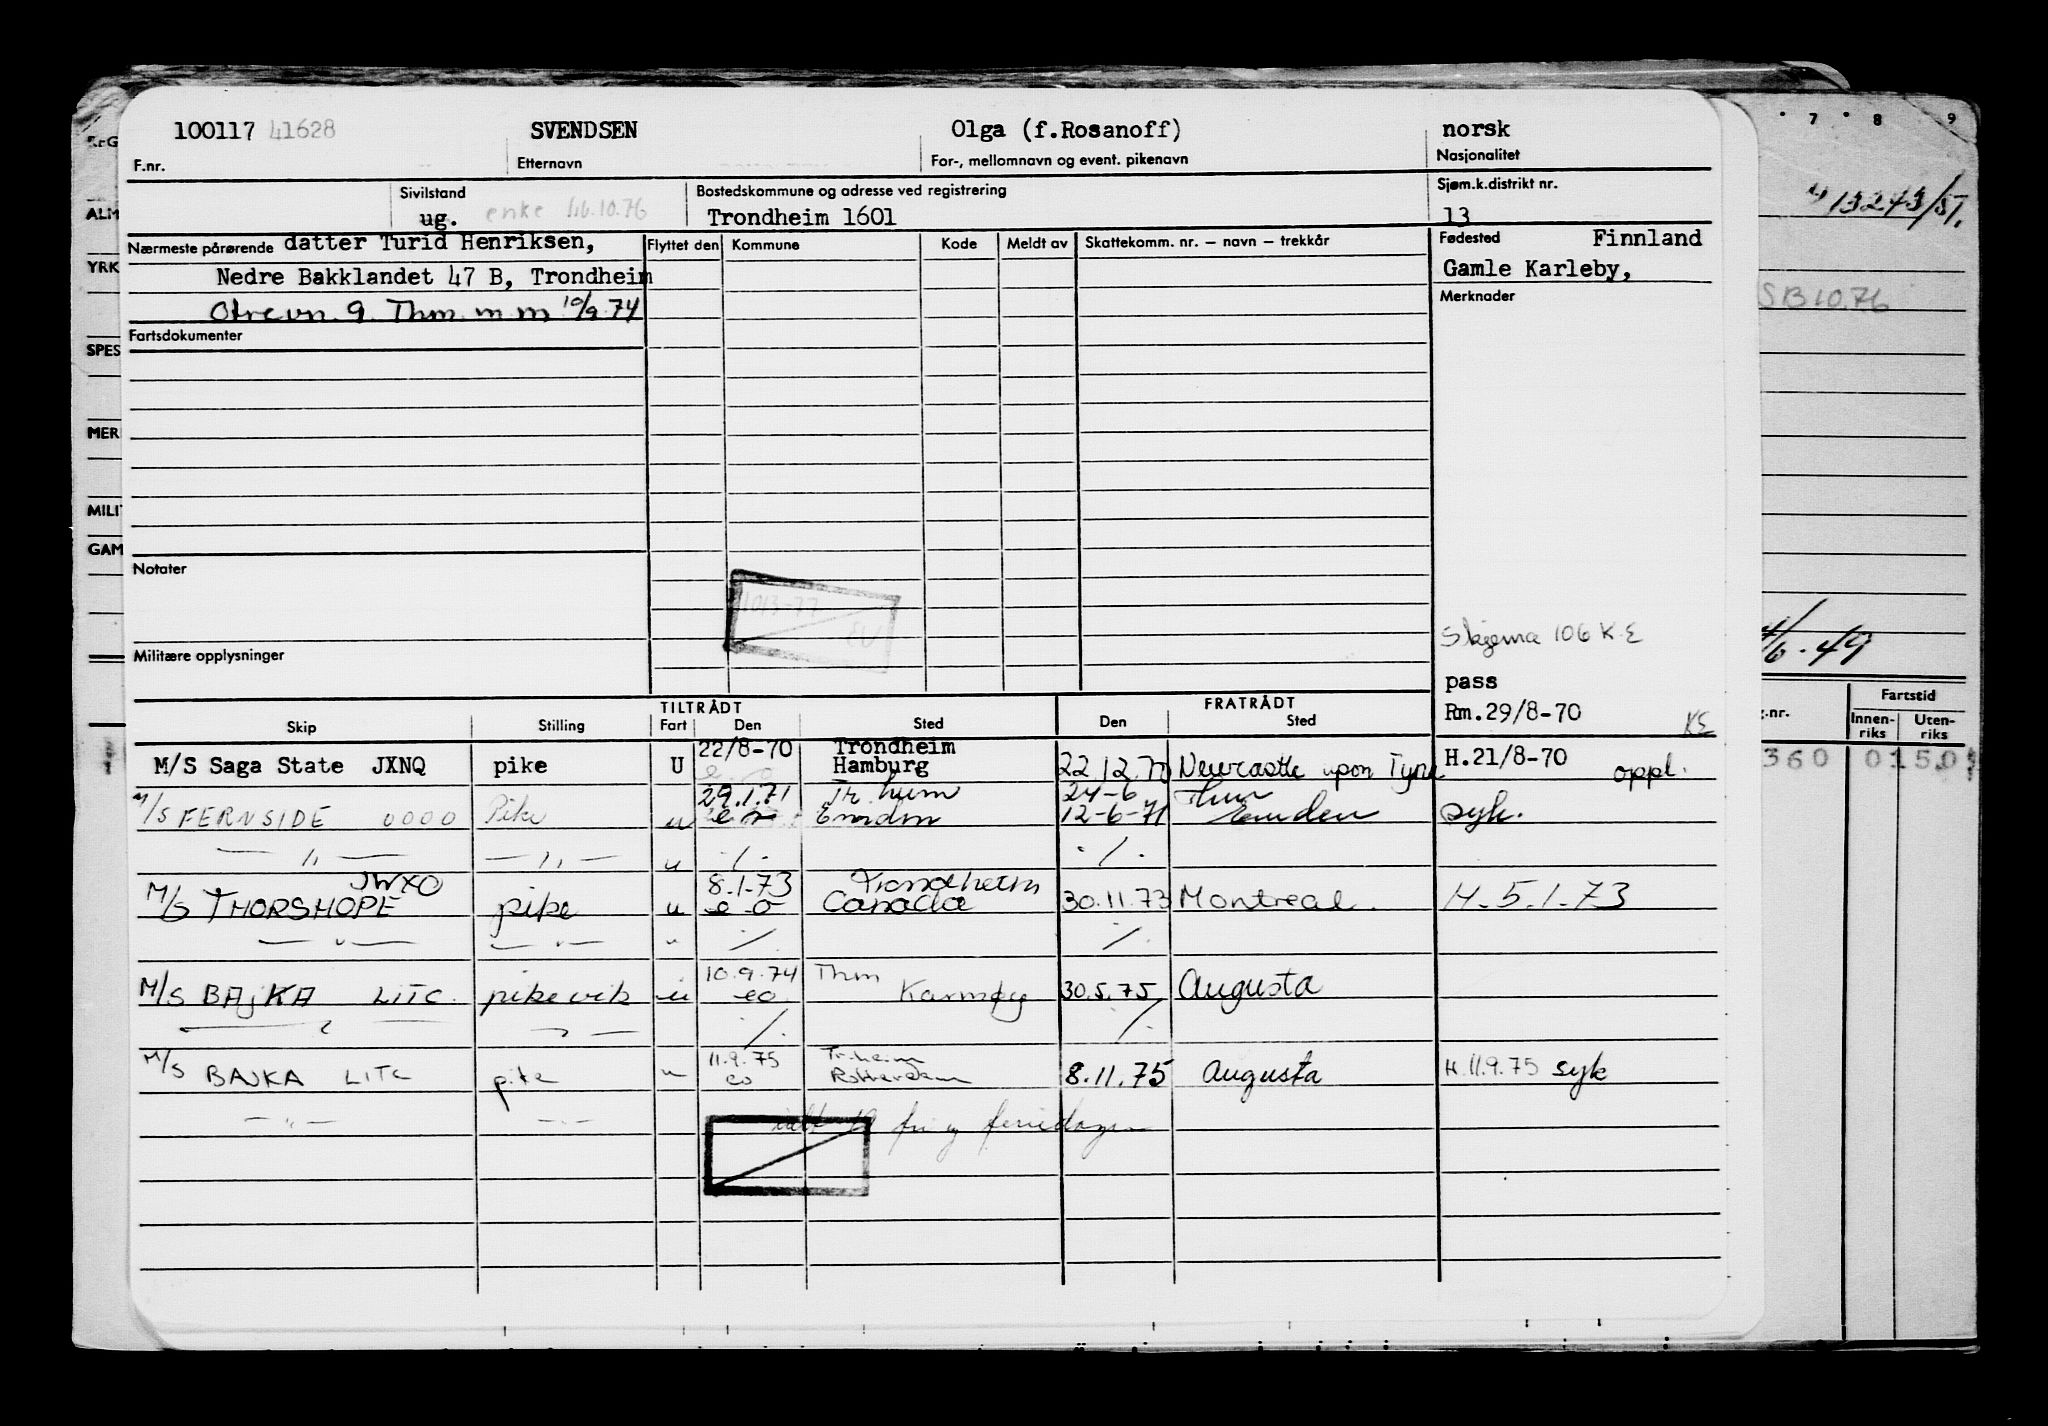 100117 41628 SVENDSEN Olga (f.Rosanoff) norsk
F.nr. Etternavn For-, mellomnavn og event. pikenavn Nasjonalitet
Sivilstand Bostedskommune og adresse ved registrering Sjøm.k.distrikt nr.
ug. enke 10.76 Trondheim 1601 13
Nærmeste pårørende datter Turid Henriksen, Flyttet den Kommune Kode Meldt av Skattekomm. nr. – navn – trekkår Fødested Finnland
Nedre Bakklandet 47 B, Trondheim Gamle Karleby,
9 Thm 10/9 74 Merknader
Fartsdokumenter
Notater
1013-77
Skjema 106 K.E
Militære opplysninger
pass
TILTRÅDT FRATRÅDT
Rm.29/8-70 KE
Skip Stilling Fart Den Sted Den Sted
22/8-70 Trondheim
M/S Saga State JXNQ pike U Hamburg 22.12.70 Newcastle upon Tyne H.21/8-70 oppl.
29.1.71 Tr.heim 24-6 Thm
M/S FERNSIDE 0000 Pike u eo Emden 12-6-71 Emden syk.
— " — — " — u ./. ./.
JWXO 8.1.73 Trondheim
M/S THORSHOPE pike u eo Canada 30.11.73 Montreal. H. 5.1.73
— " — — " — " ./. ./.
10.9.74 Thm
M/S BAJKA LITC. pikevik u eo Karmøy 30.5.75 Augusta
./. ./.
11.9.75 Tr.heim
M/S BAJKA LITC pike u eo Rotterdam 8.11.75 Augusta H.11.9.75 syk
— " — — " —
fri og feriedager
7 8 9
13273/51.
SB 10.76
/6.49
Fartstid
g.nr. Innen-riks Uten-riks
360 0150
ALM
YRK
SPES
MER
MILIT
GAM